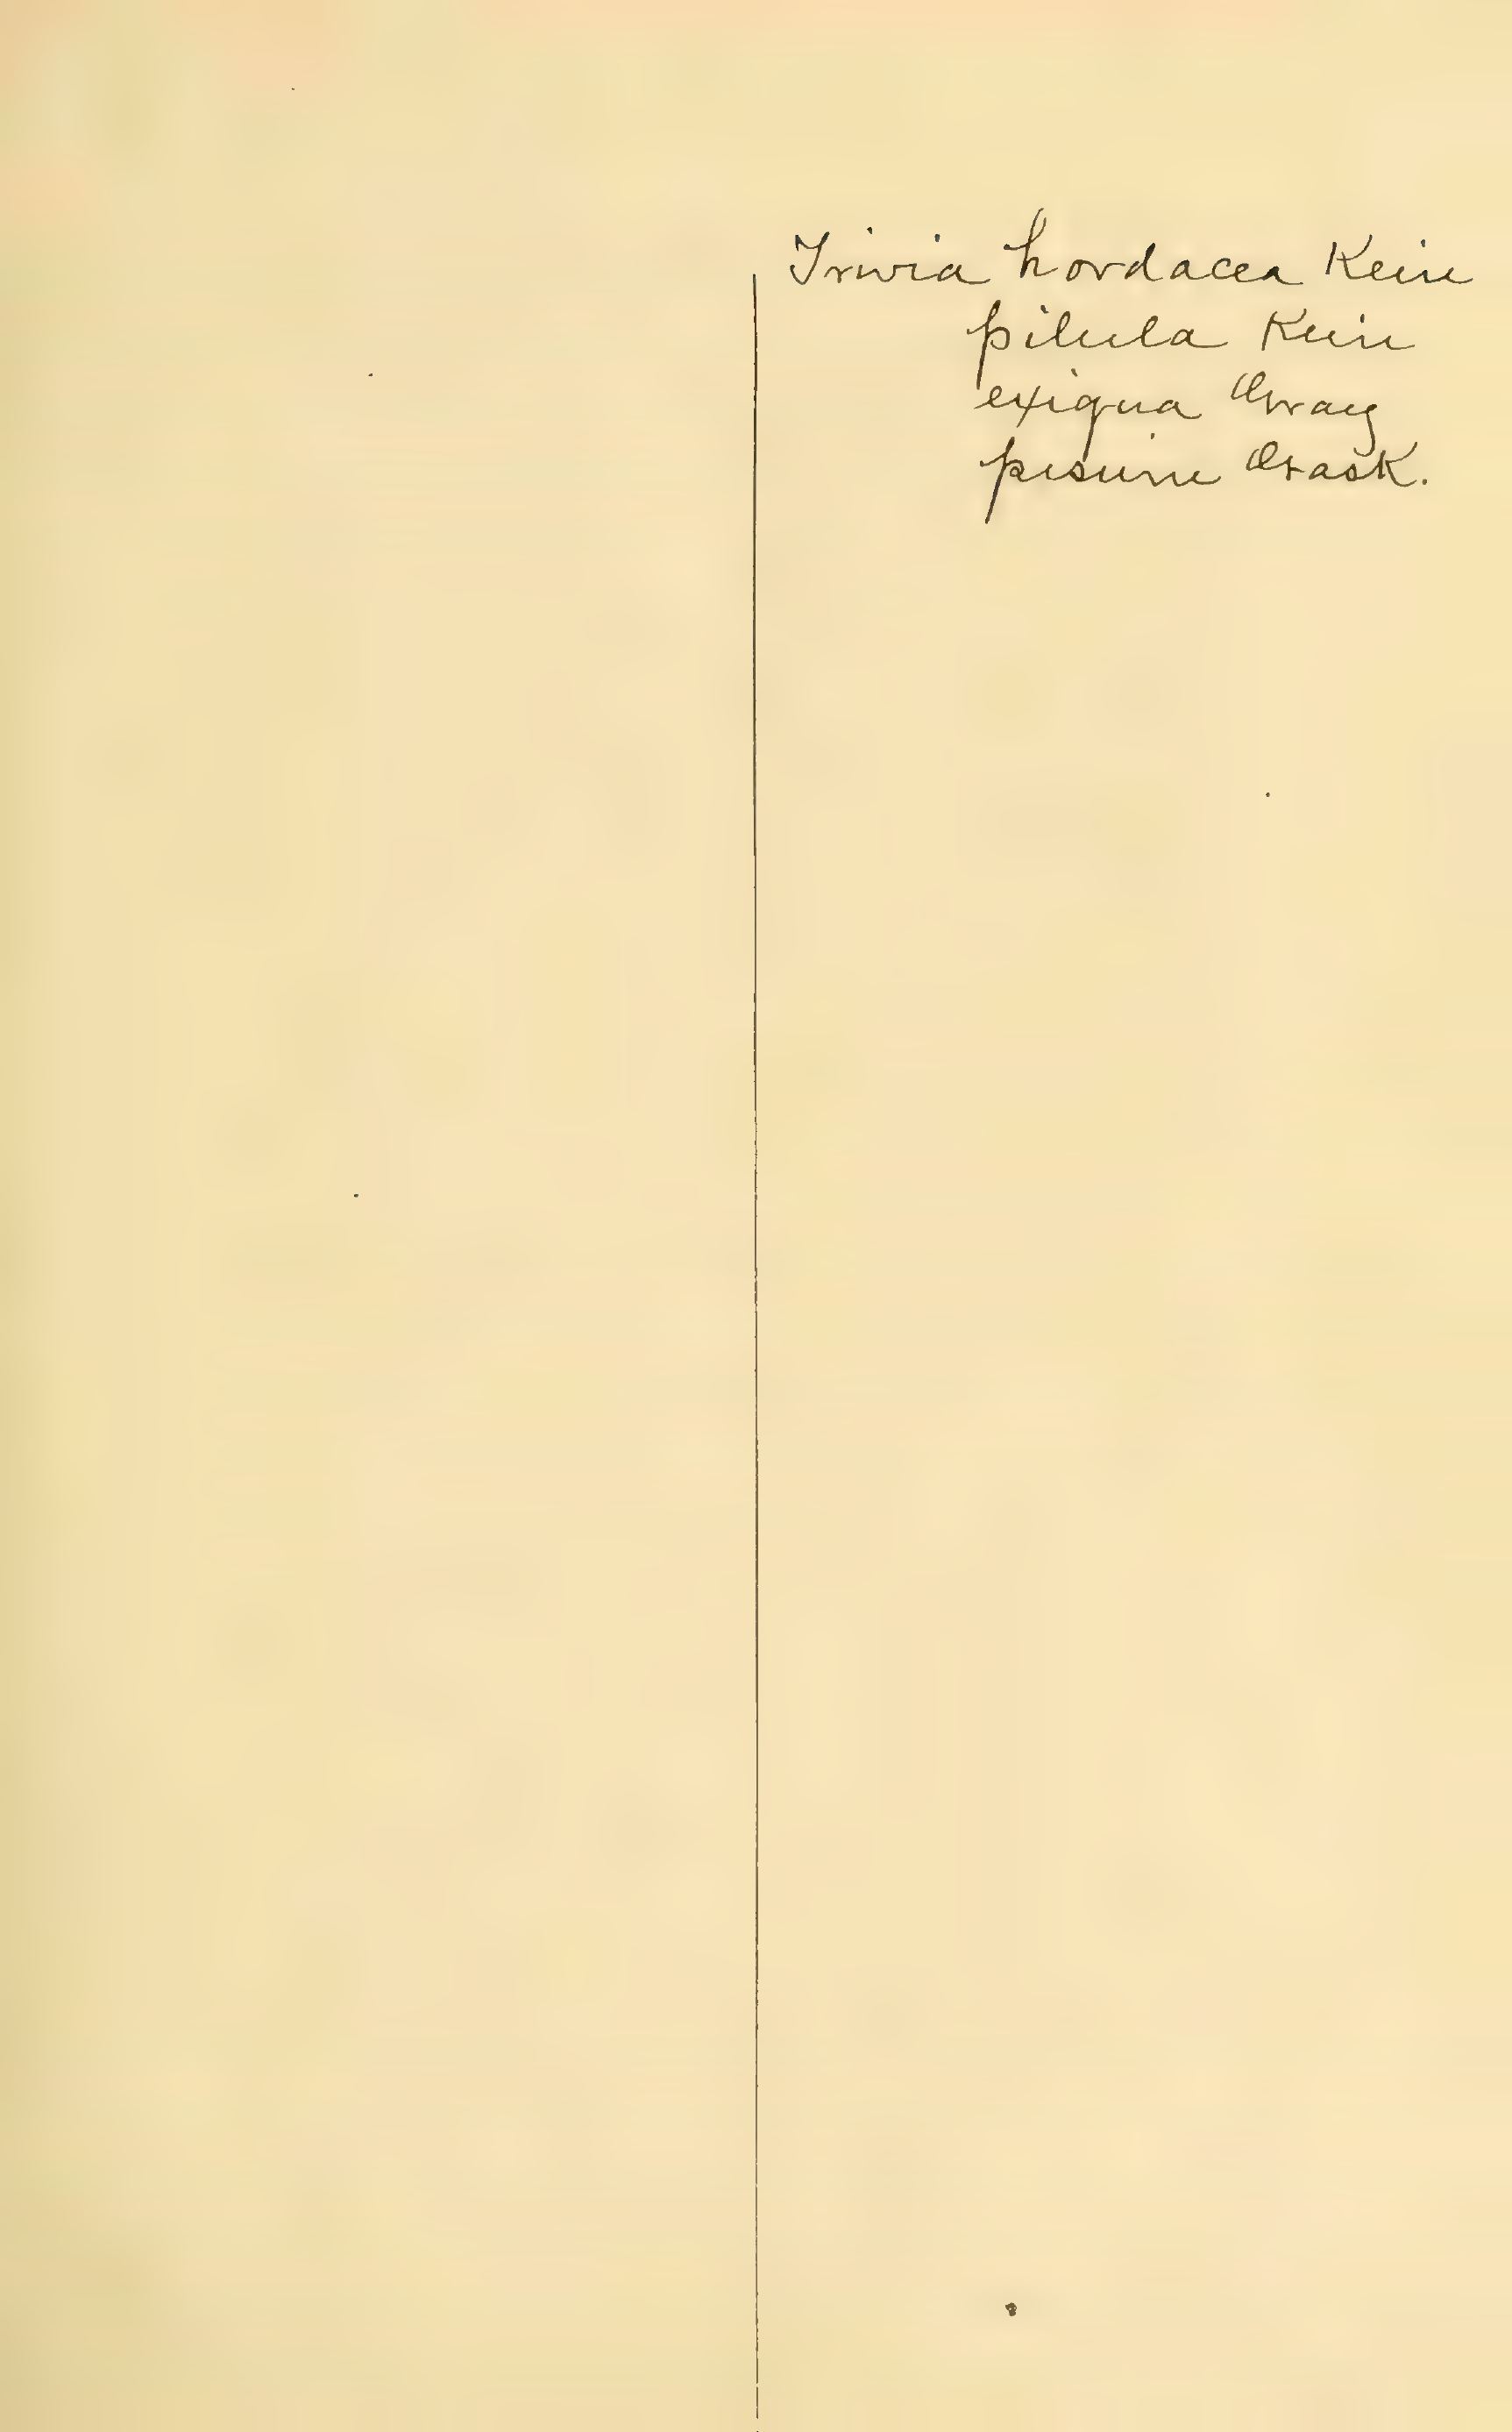 Trivia hordacea Kein
pilula Kein
exigua Gray
pisum Gask.